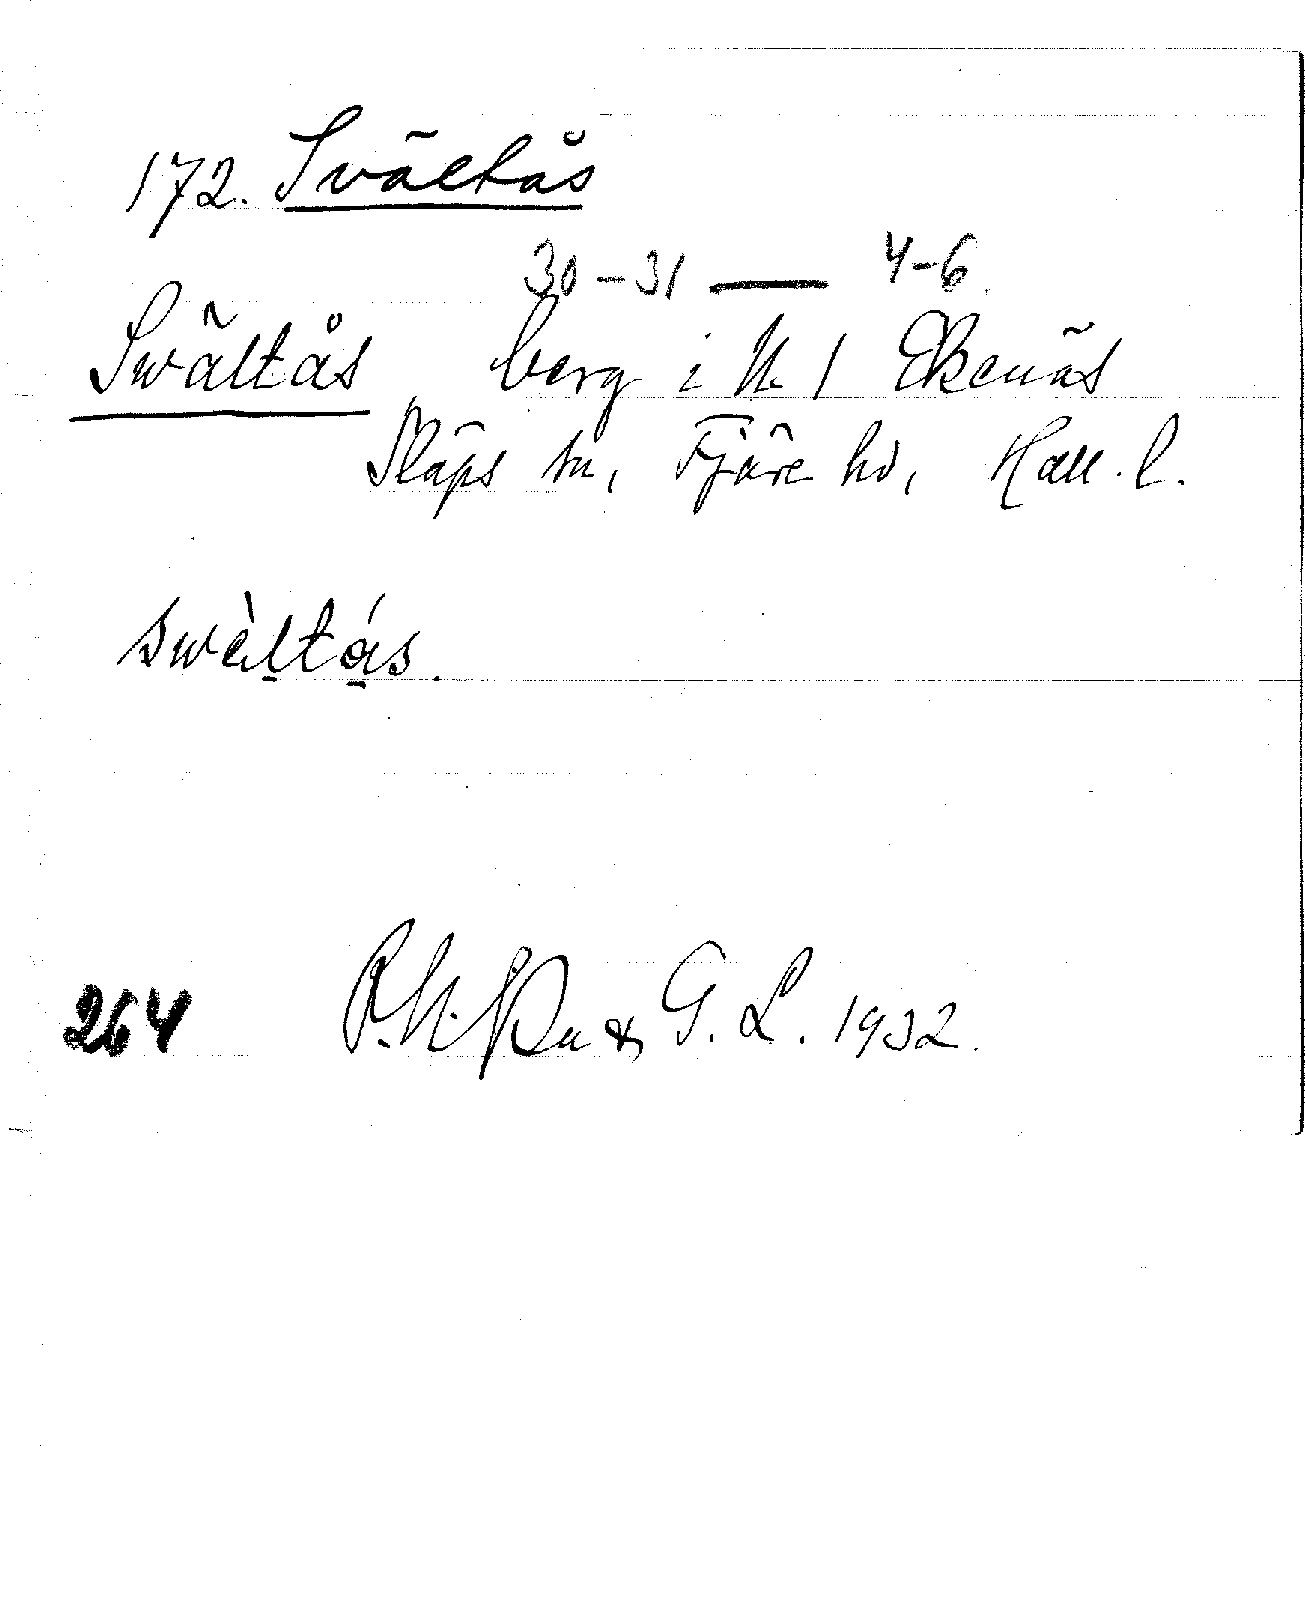 172. Svältås
30-31 — 4-6
Svältås berg i N. 1 Ekenäs
Släps sn, Fjäre hd, Hall. l.
swàltás.
264 G. L. 1932.